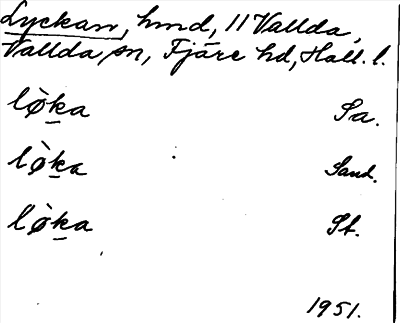 Lyckan, hmd, 11 Vallda,
Vallda sn, Fjäre hd, Hall. l.
lø̀ḵa Sa.
lø̀ḵa Sand.
lø̀ḵa St.
1951.